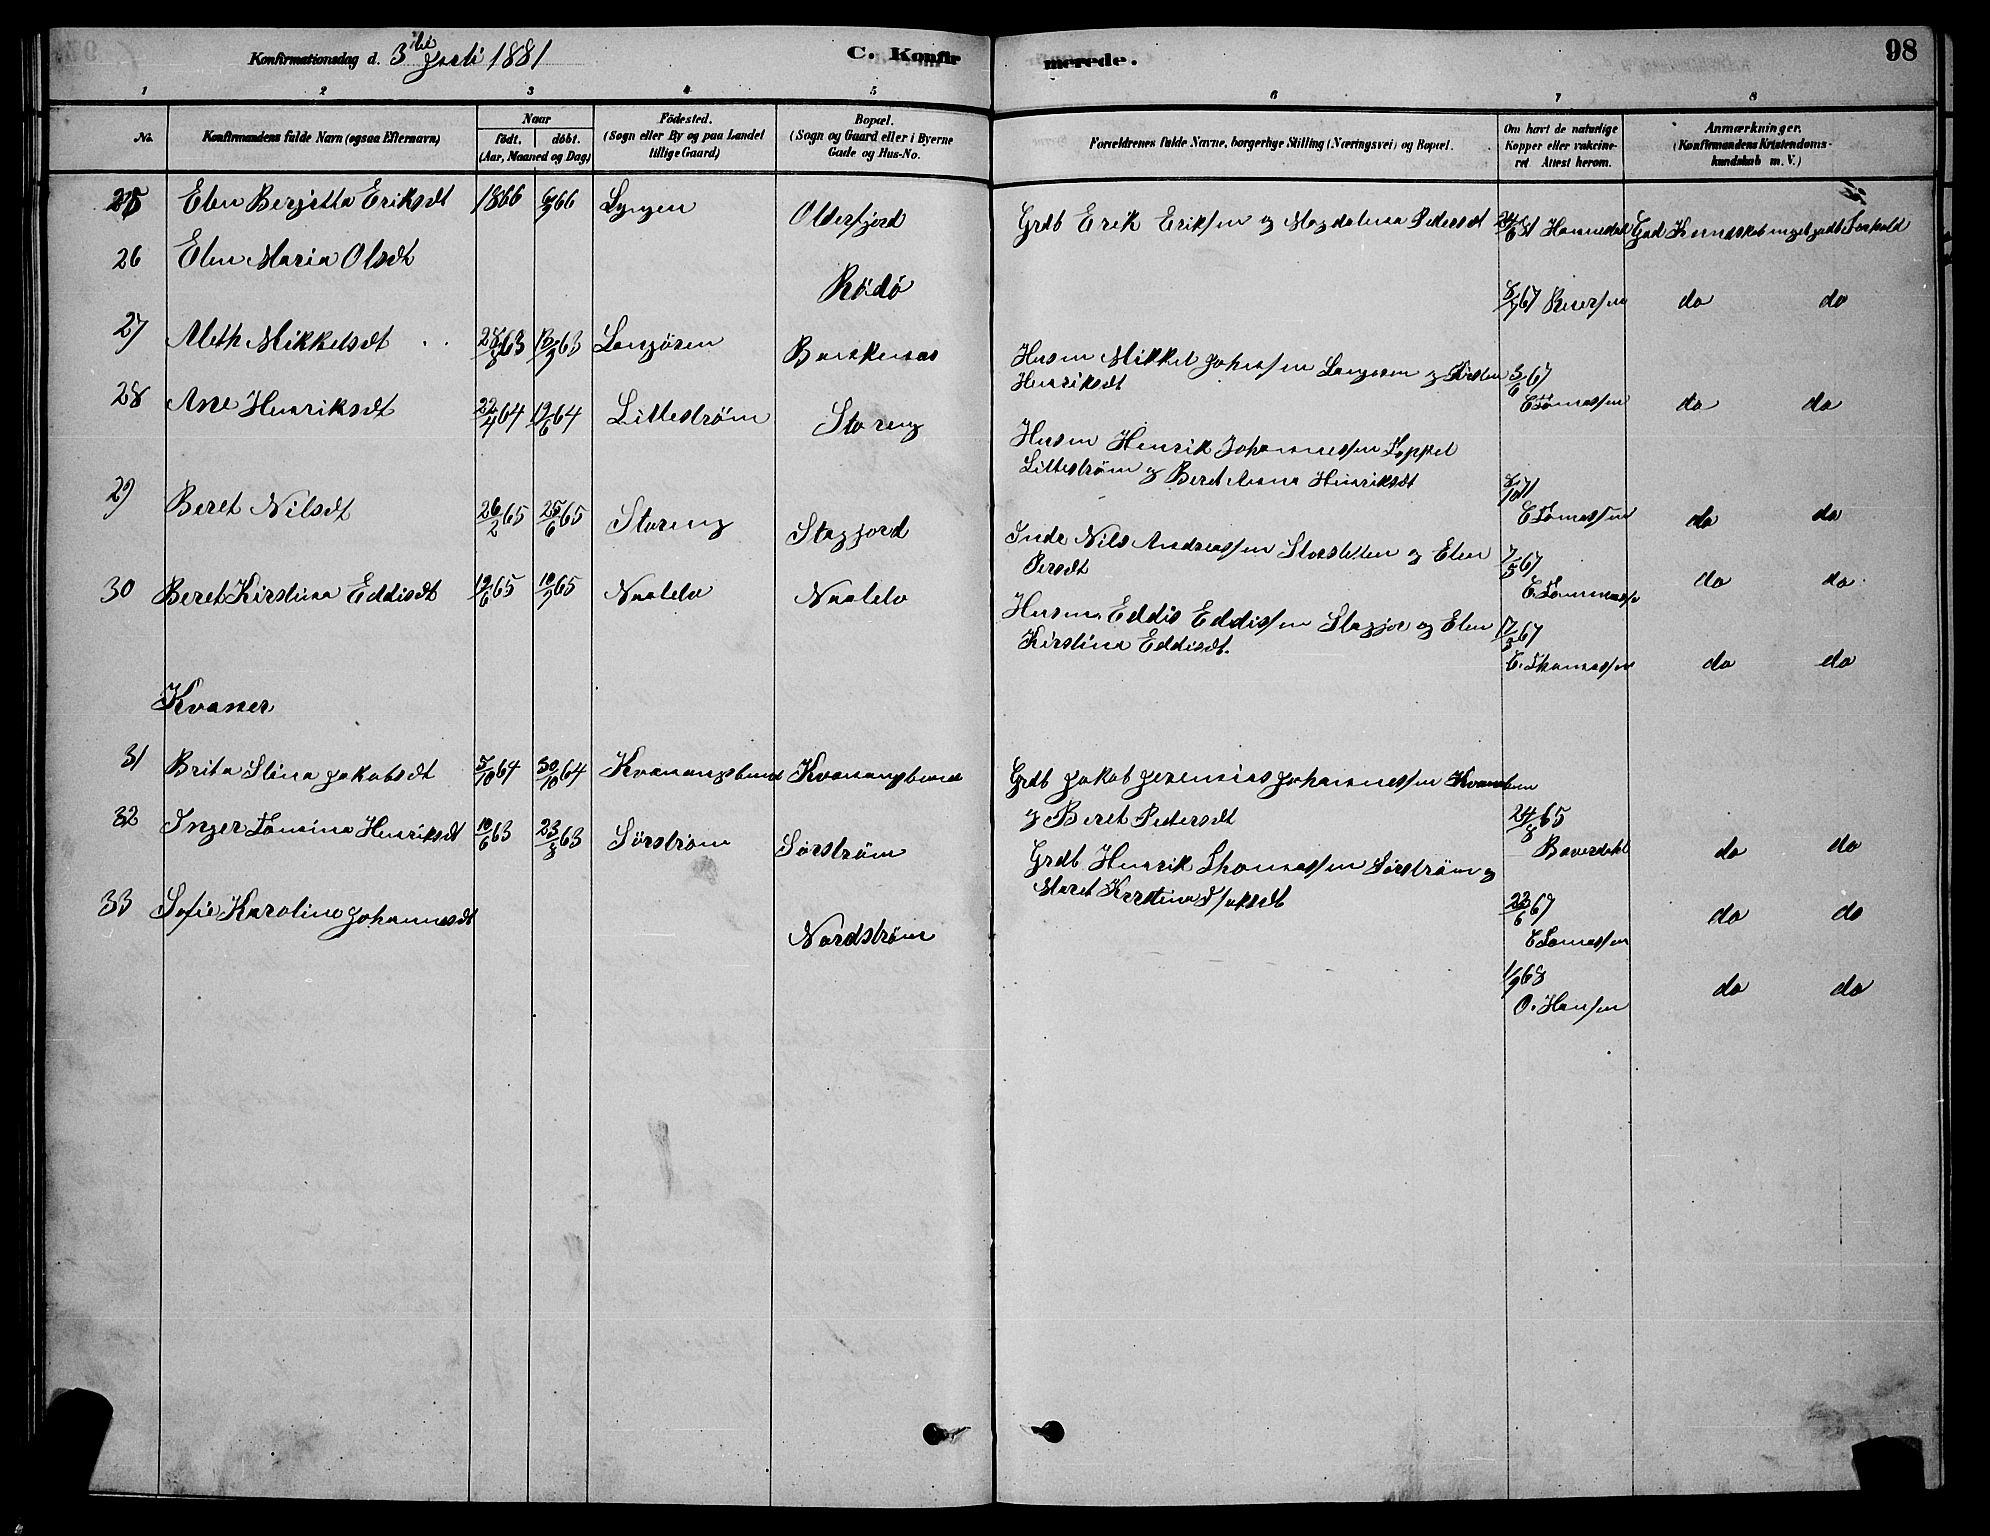 Konfirmationsdag d. 3die Juli 1881
C. Konfirmerede.
98
1 2 3 4 5 6 7 8
No. Konfirmandens fulde Navn (ogsaa Efternavn) Naar født. døbt. (Aar, Maaned og Dag) Fødested. (Sogn eller By og paa Landet tillige Gaard) Bopæl. (Sogn og Gaard eller i Byerne Gade og Hus-No. Forældrenes fulde Navne, borgerlige Stilling (Næringsvei) og Bopæl. Om havt de naturlige Kopper eller vakcineret Attest herom. Anmærkninger. (Konfirmandens Kristendomskundskab m. V.)
25 Elen Berjitta Eriksdt 1866 66 Lyngen Olderfjord Grdb Erik Eriksen og Magdalena Pedersdt God Kundskab meget godt Forhold
26 Elen Maria Olsdt Rødø 8/7 67 do do
27 Meth Mikkelsdt 63 63 Langøren Burskenes Husm Mikkel Johansen Langøren og Kirsten
Henriksdt 67 E Tomassen do do
28 Ane Henriksdt 22/4 64 19/6 64 Littestrøm Storeng Husm Henrik Johannessen Toppel
Littestrøm og Beret Anna Henriksdt 71 E Tomassen do do
29 Beret Nilsdt 26/2 65 25/6 65 Storeng Stagfjord Inde Nils Andreassen Storsletten og Elen
Persdt 7/5 67 do do
30 Beret Kirstina Eddisdt 19/6 65 65 Naalelv Naalelv Husm Eddis Eddissen Stagfjor og Elen
Kirstina Eddisdt. 67 E. Thomassen do do
Kvæner
31 Brita Stina Jakobsdt 5/10 64 30/10 64 Kvænangsbund Kvænangsbund Grdb Jakob Jeremias Johannessen
og Beret Pedersdt 24/8 65 do do
32 Inger Tomina Henriksdt 10/6 63 23/8 63 Sørstrøm Sørstrøm Grdb Henrik Thomassen Sørstrøm og
Maret Kirstina Isaksdt 23/6 67 E Tomassen do do
33 Sofie Karoline Johannesdt Nordstrøm 1/9 68 O. Hansen do do